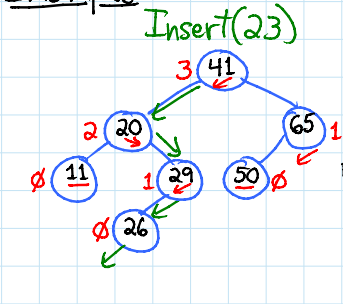 Insert(23)
3 41
2 20 65 1
Ø 11 1 29 50 Ø
Ø 26